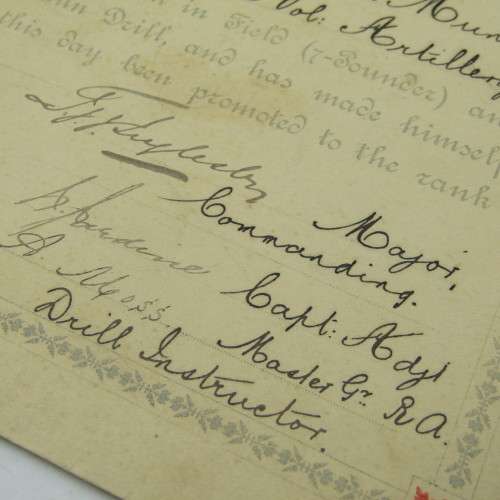 Mun
in in Field (7-Pounder) an
Vol: Artillery
Gun Drill, and has made himself
this day been promoted to the rank
Major,
Commanding.
Capt: Adjt
A. Moss. Master Gr. R.A.
Drill Instructor.